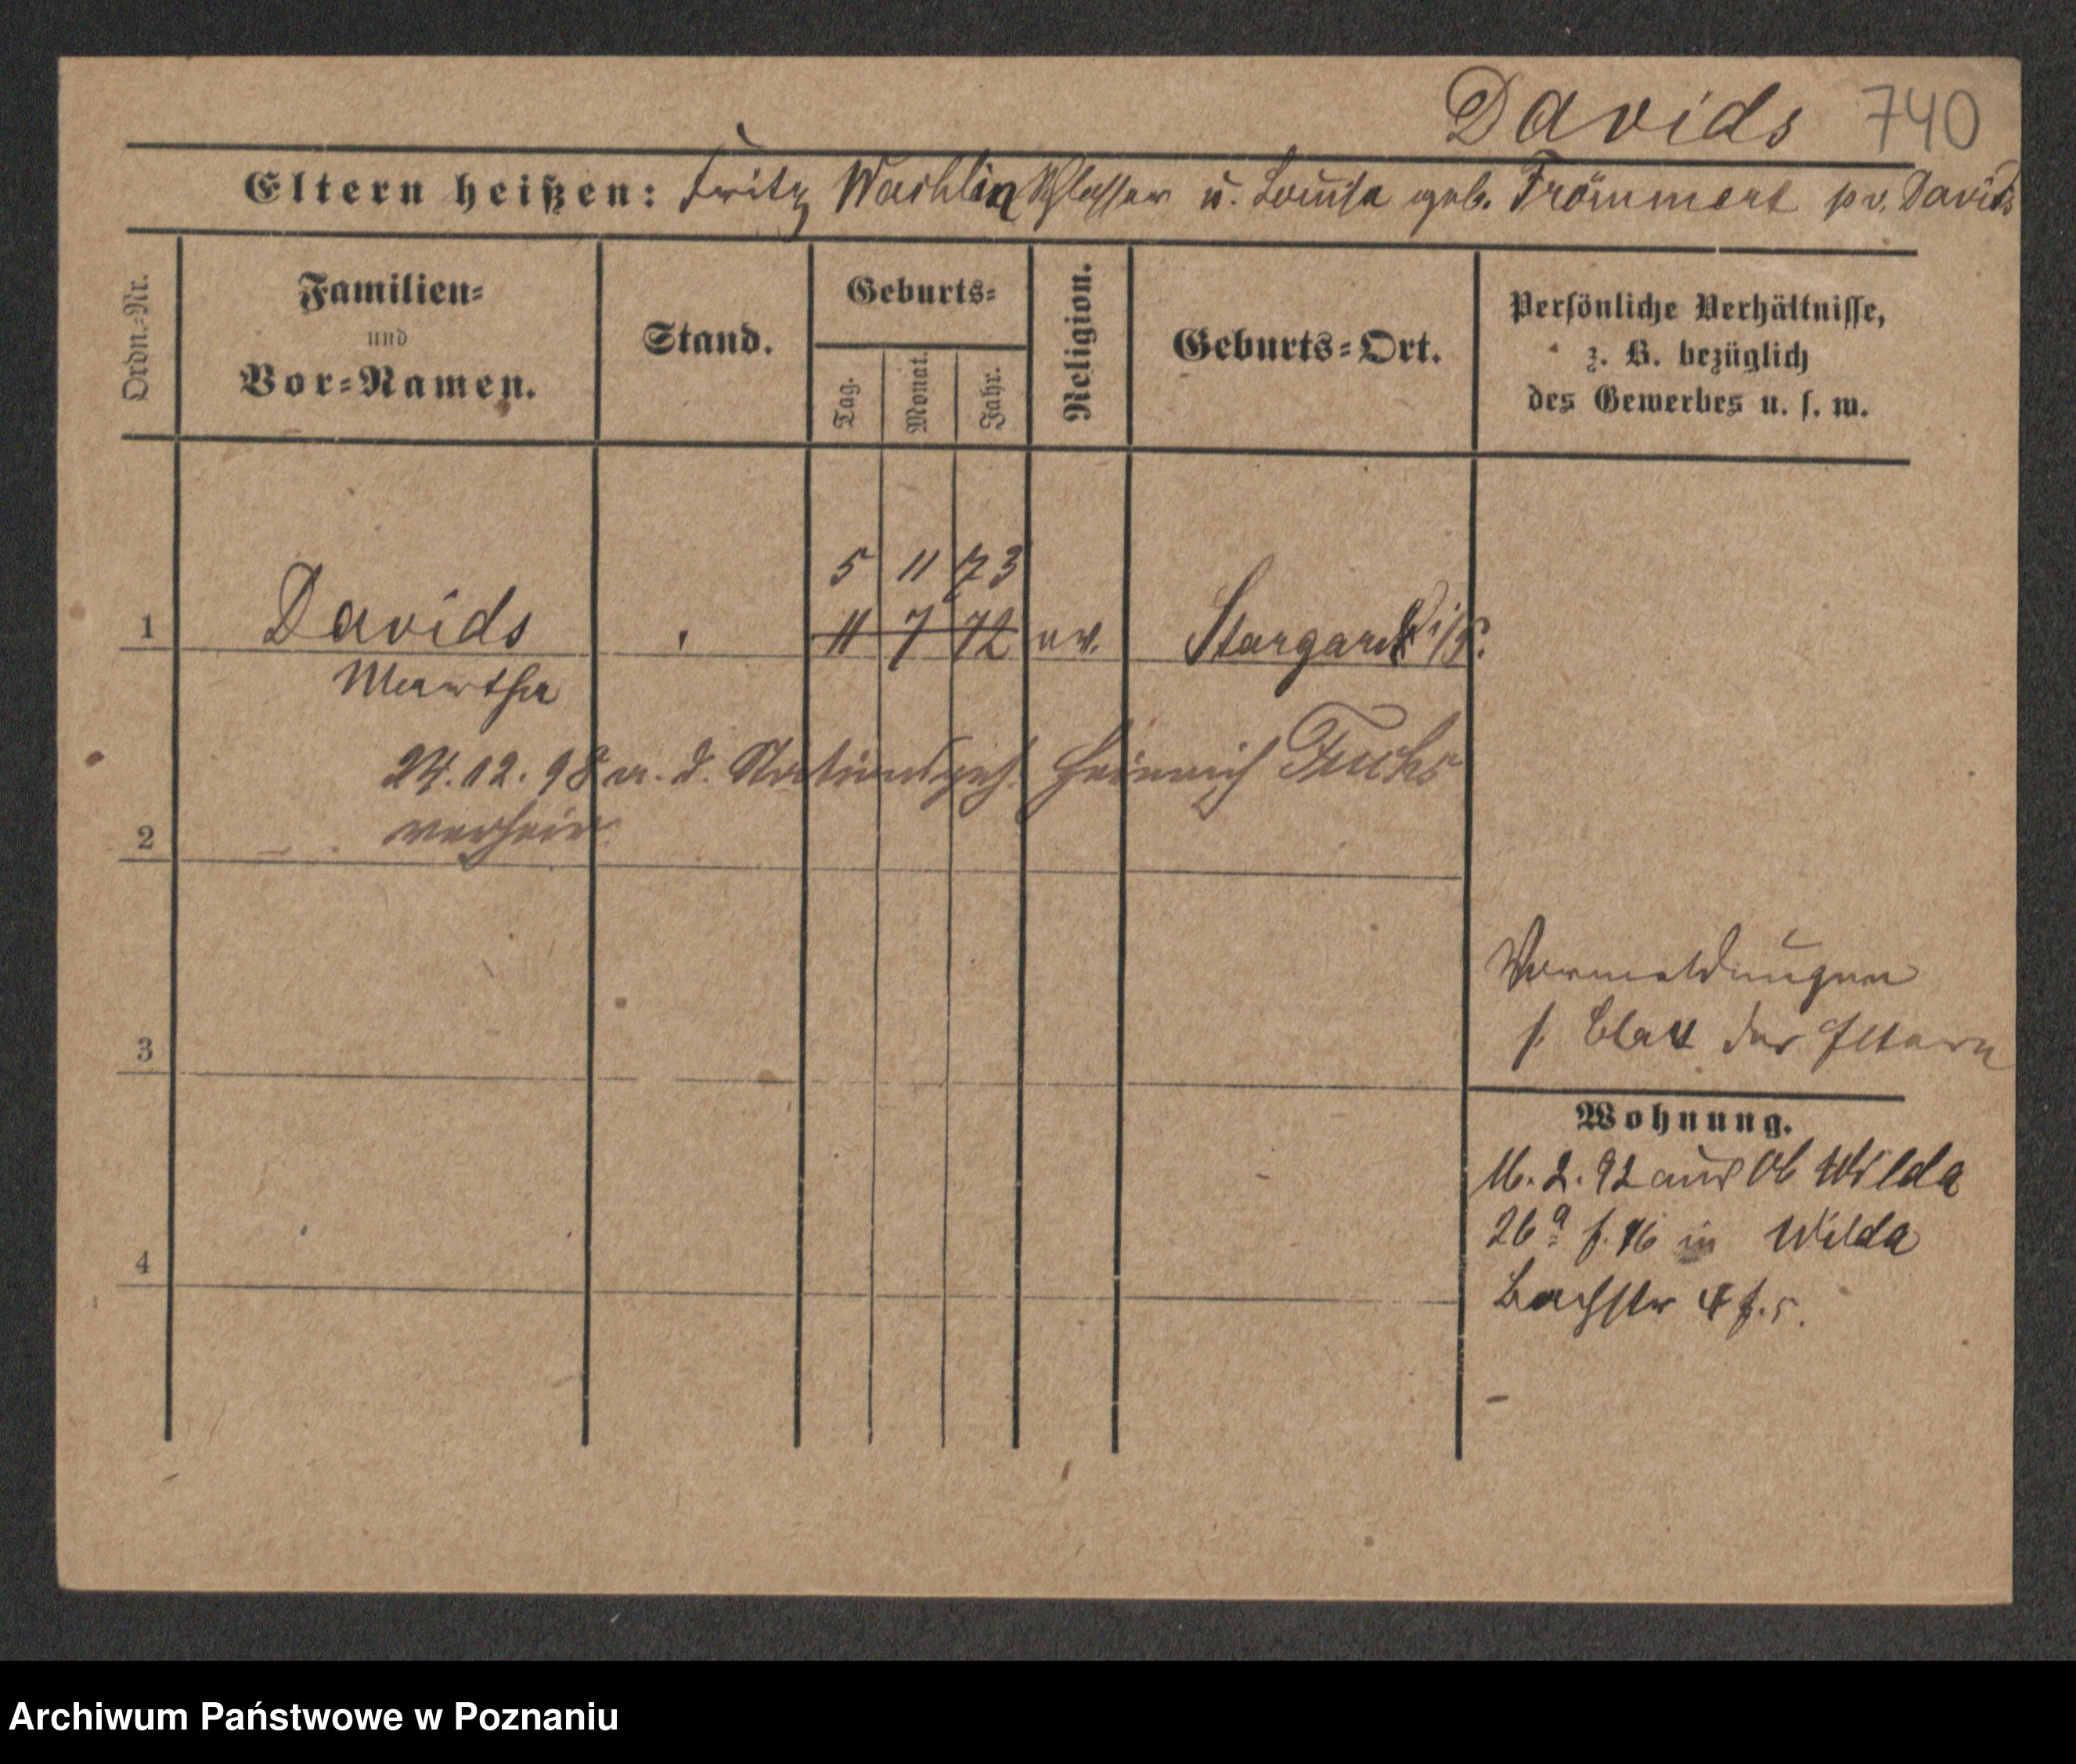 Davids 740
Eltern heißen: Fritz Wachlin Schlosser u. Louise geb. Frömmert pv. Davids
Ordn.=Nr.
Familien=
und
Vor=Namen.
Stand.
Geburts=
Tag.
Monat.
Jahr.
Religion.
Geburts=Ort.
Persönliche Verhältnisse,
z. B. bezüglich
des Gewerbes u. s. w.
5 11 73
1 Davids 11 7 72 ev. Stargard i/P.
Martha
24.12.98 m. d. Stationsgeh. Heinrich Fuchs
verheir.
2
Vormeldungen
s. Blatt der Eltern
3
Wohnung.
16.2.92 aus Ob Wilda
26a f. 16 in Wilda
Bachstr 4 f. 5.
4
Archiwum Państwowe w Poznaniu